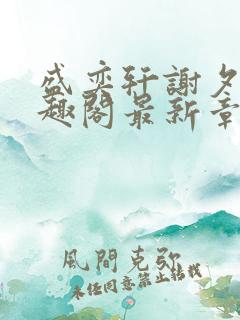 盛奕轩謝夕
趣閣最新章
風間克弥
未经同意禁止转载